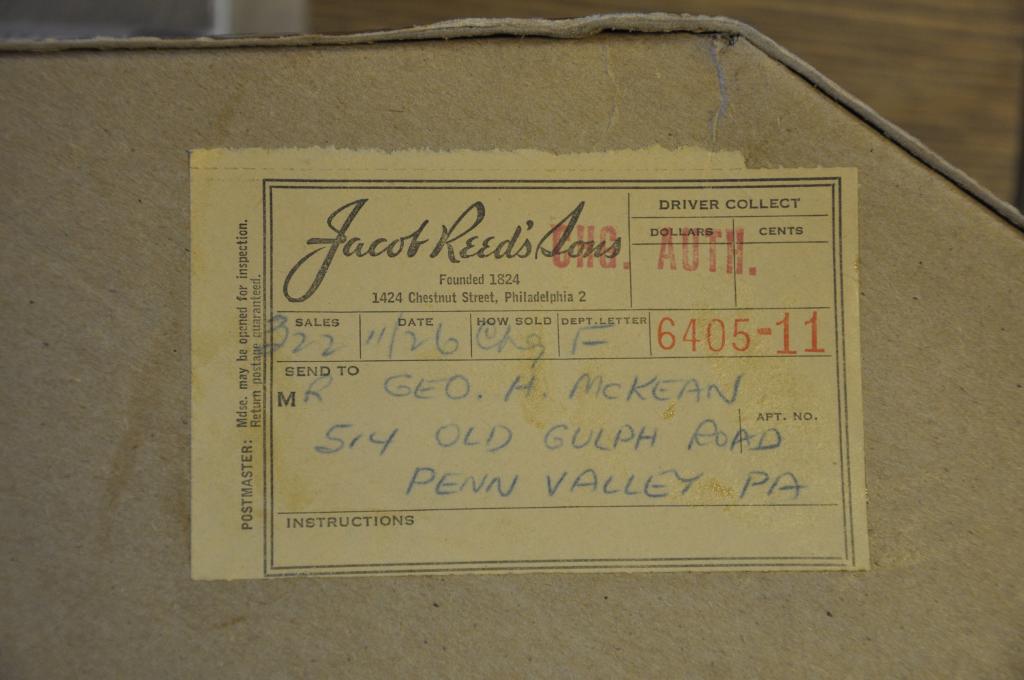 Jacob Reed's Sons
Founded 1824
1424 Chestnut Street, Philadelphia 2
DRIVER COLLECT
DOLLARS CENTS
CHG. AUTH.
SALES DATE HOW SOLD DEPT. LETTER
322 11/26 Chg F 6405-11
SEND TO
MR GEO. H. McKEAN
APT. NO.
514 OLD GULPH ROAD
PENN VALLEY PA
INSTRUCTIONS
POSTMASTER: Mdse. may be opened for inspection.
Return postage guaranteed.